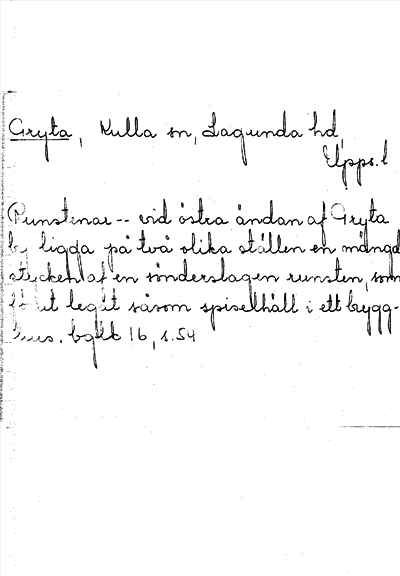 Gryta, Kulla sn, Lagunda hd,
Upps. l
Runstenar -- vid östra ändan af Gryta
by ligga på två olika ställen en mängd
stycken af en sönderslagen runsten, som
förut legat såsom spiselhäll i ett brygg-
hus. bghb 16, s. 54